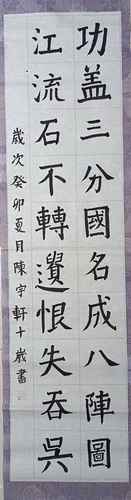 功盖三分國名成八陣圖
江流石不轉遺恨失吞吳
歲次癸卯夏月陳宇軒十歲書